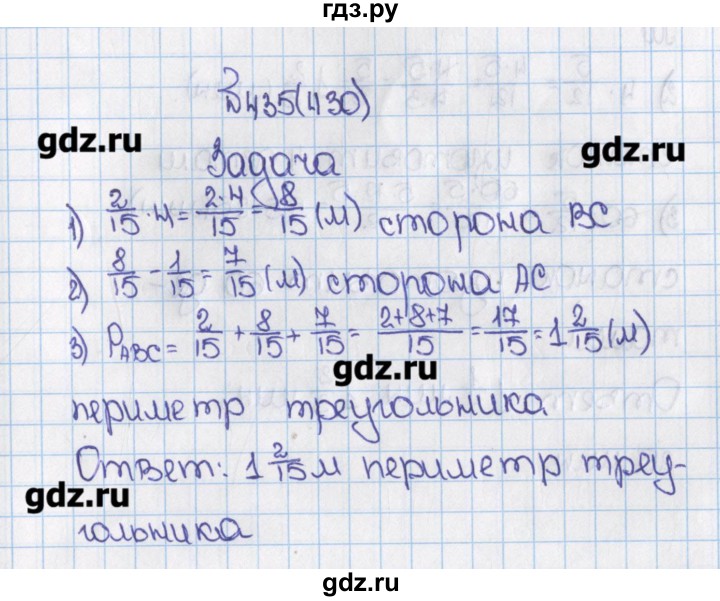 гдз.ру
№435(430)
gdz.ru
gdz.ru
Задача
1) 2/15 · 4 = 2·4/15 = 8/15 (м) сторона BC
2) 8/15 - 1/15 = 7/15 (м) сторона AC
3) P_ABC = 2/15 + 8/15 + 7/15 = 2+8+7/15 = 17/15 = 1 2/15 (м)
gdz.ru
периметр треугольника
Ответ: 1 2/15 м периметр треу-
gdz.ru
гольника
gdz.ru